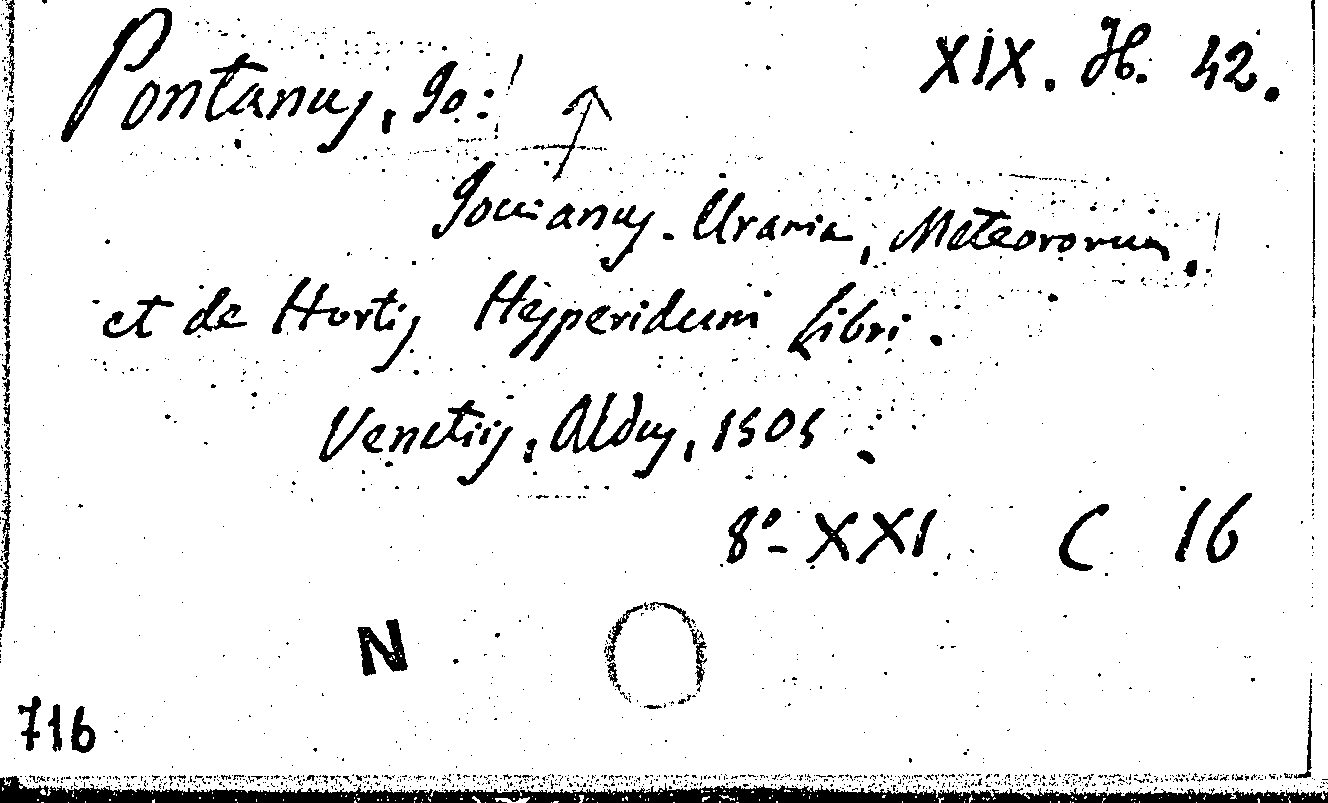 Pontanus, Jo: XIX. H. 42.
Jouianus. Urania, Meteororum,
et de Hortis Hesperidum Libri.
Venetiis, Aldus, 1505
8º- XXI C 16
N
716